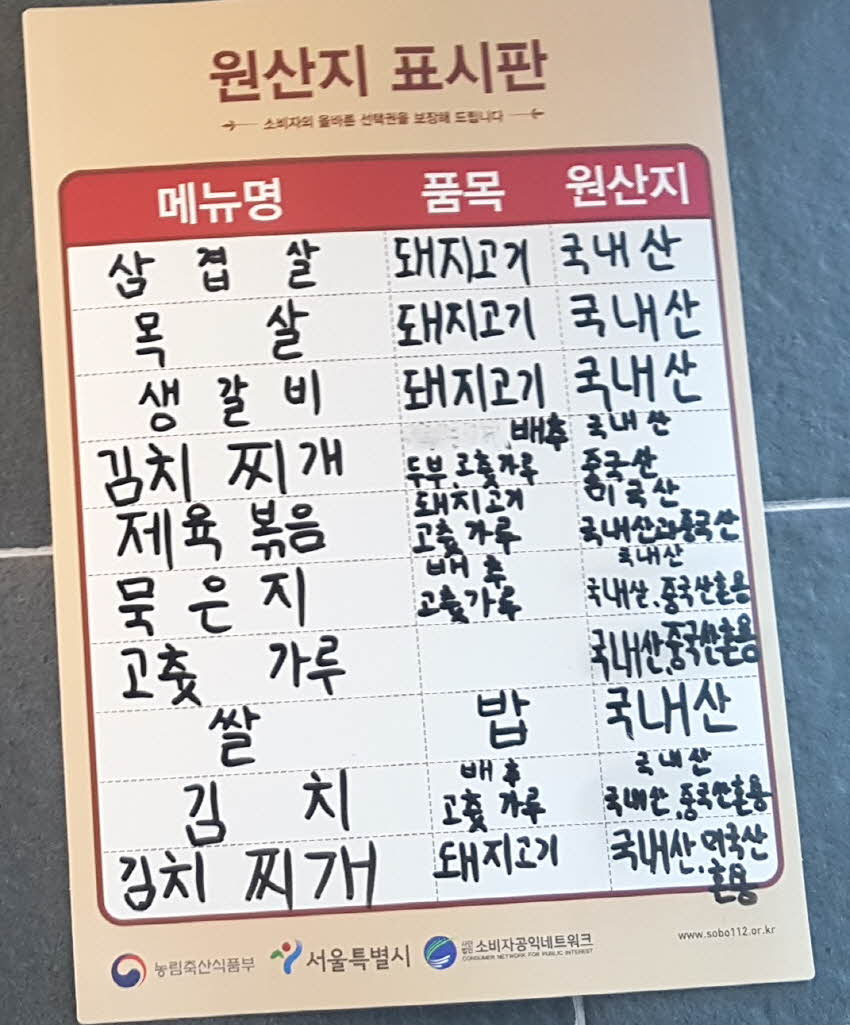 원산지 표시판
소비자의 올바른 선택권을 보장해 드립니다
메뉴명 품목 원산지
삼겹살 돼지고기 국내산
목살 돼지고기 국내산
생갈비 돼지고기 국내산
배추 국내산
김치찌개 두부, 고춧가루 중국산
돼지고기 미국산
제육볶음 고춧가루 국내산과중국산
배추 국내산
묵은지 고춧가루 국내산, 중국산혼용
고춧가루 국내산,중국산혼용
쌀 밥 국내산
배추 국내산
김치 고춧가루 국내산, 중국산혼용
김치찌개 돼지고기 국내산, 미국산
혼용
농림축산식품부 서울특별시 사단법인 소비자공익네트워크 www.sobo112.or.kr
CONSUMER NETWORK FOR PUBLIC INTEREST